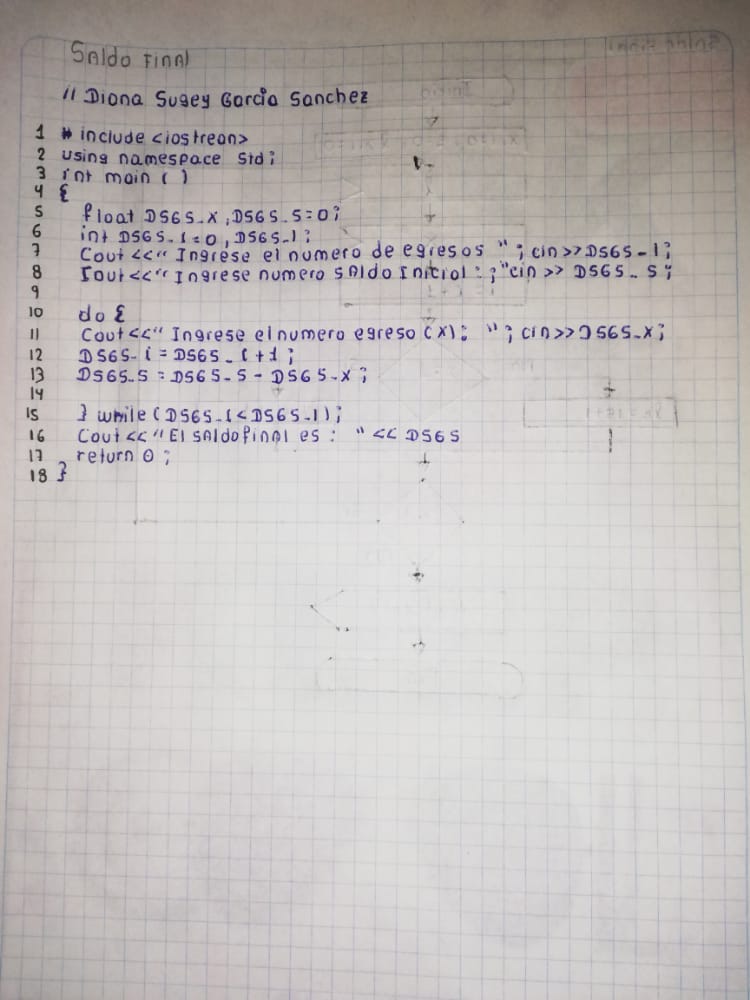 Saldo Final
// Diana Sugey Garcia Sanchez
1 # include <iostrean>
2 using namespace std;
3 int main ()
4 {
5 float DSGS_X, DSGS_S=0;
6 int DSGS_i=0, DSGS_1;
7 Cout <<" Ingrese el numero de egresos "; cin>>DSGS_1;
8 Cout<<" Ingrese numero saldo Inicial : ;"cin >> DSGS_S;
9
10 do {
11 Cout<<" Ingrese el numero egreso (x): "; cin>>DSGS_X;
12 DSGS_i = DSGS_i+1;
13 DSGS_S = DSGS_S - DSGS_X;
14
15 } while (DSGS_i<DSGS_1);
16 Cout <<"El saldo final es : " << DSGS
17 return 0;
18 }